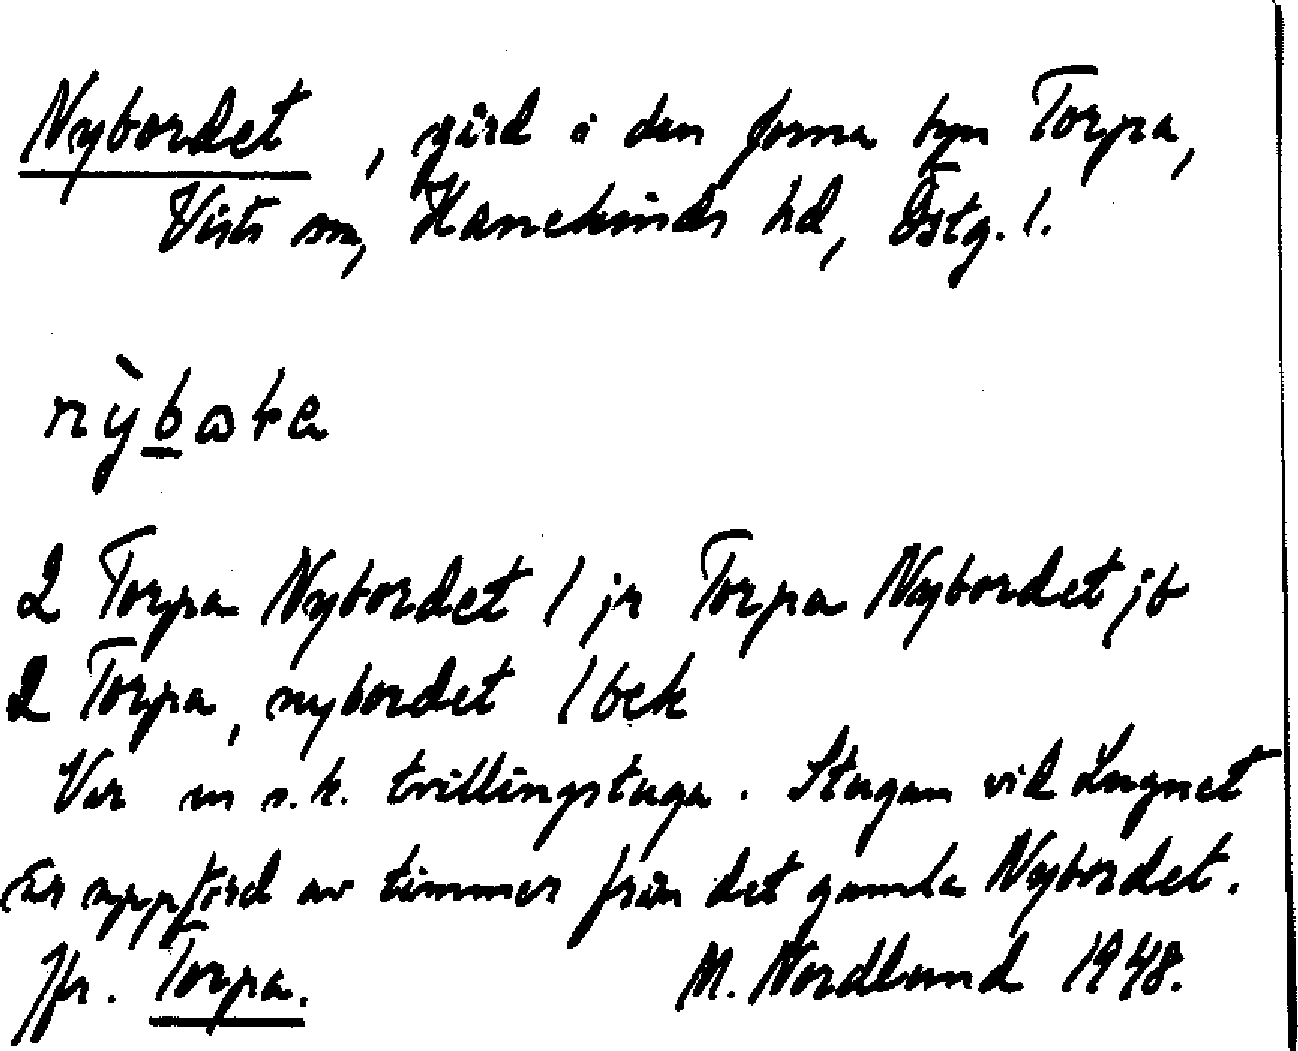 Nybordet, gård i den forna byn Torpa,
Vists sn, Hanekinds hd, Östg. l.
2 Torpa Nybordet 1 jr Torpa Nybordet jb
2 Torpa, nybordet 1 bek
Var en s.k. tvillingstuga. Stugan vid Lugnet
är uppförd av timmer från det gamla Nybordet.
Jfr. Torpa. M. Nordlund 1948.